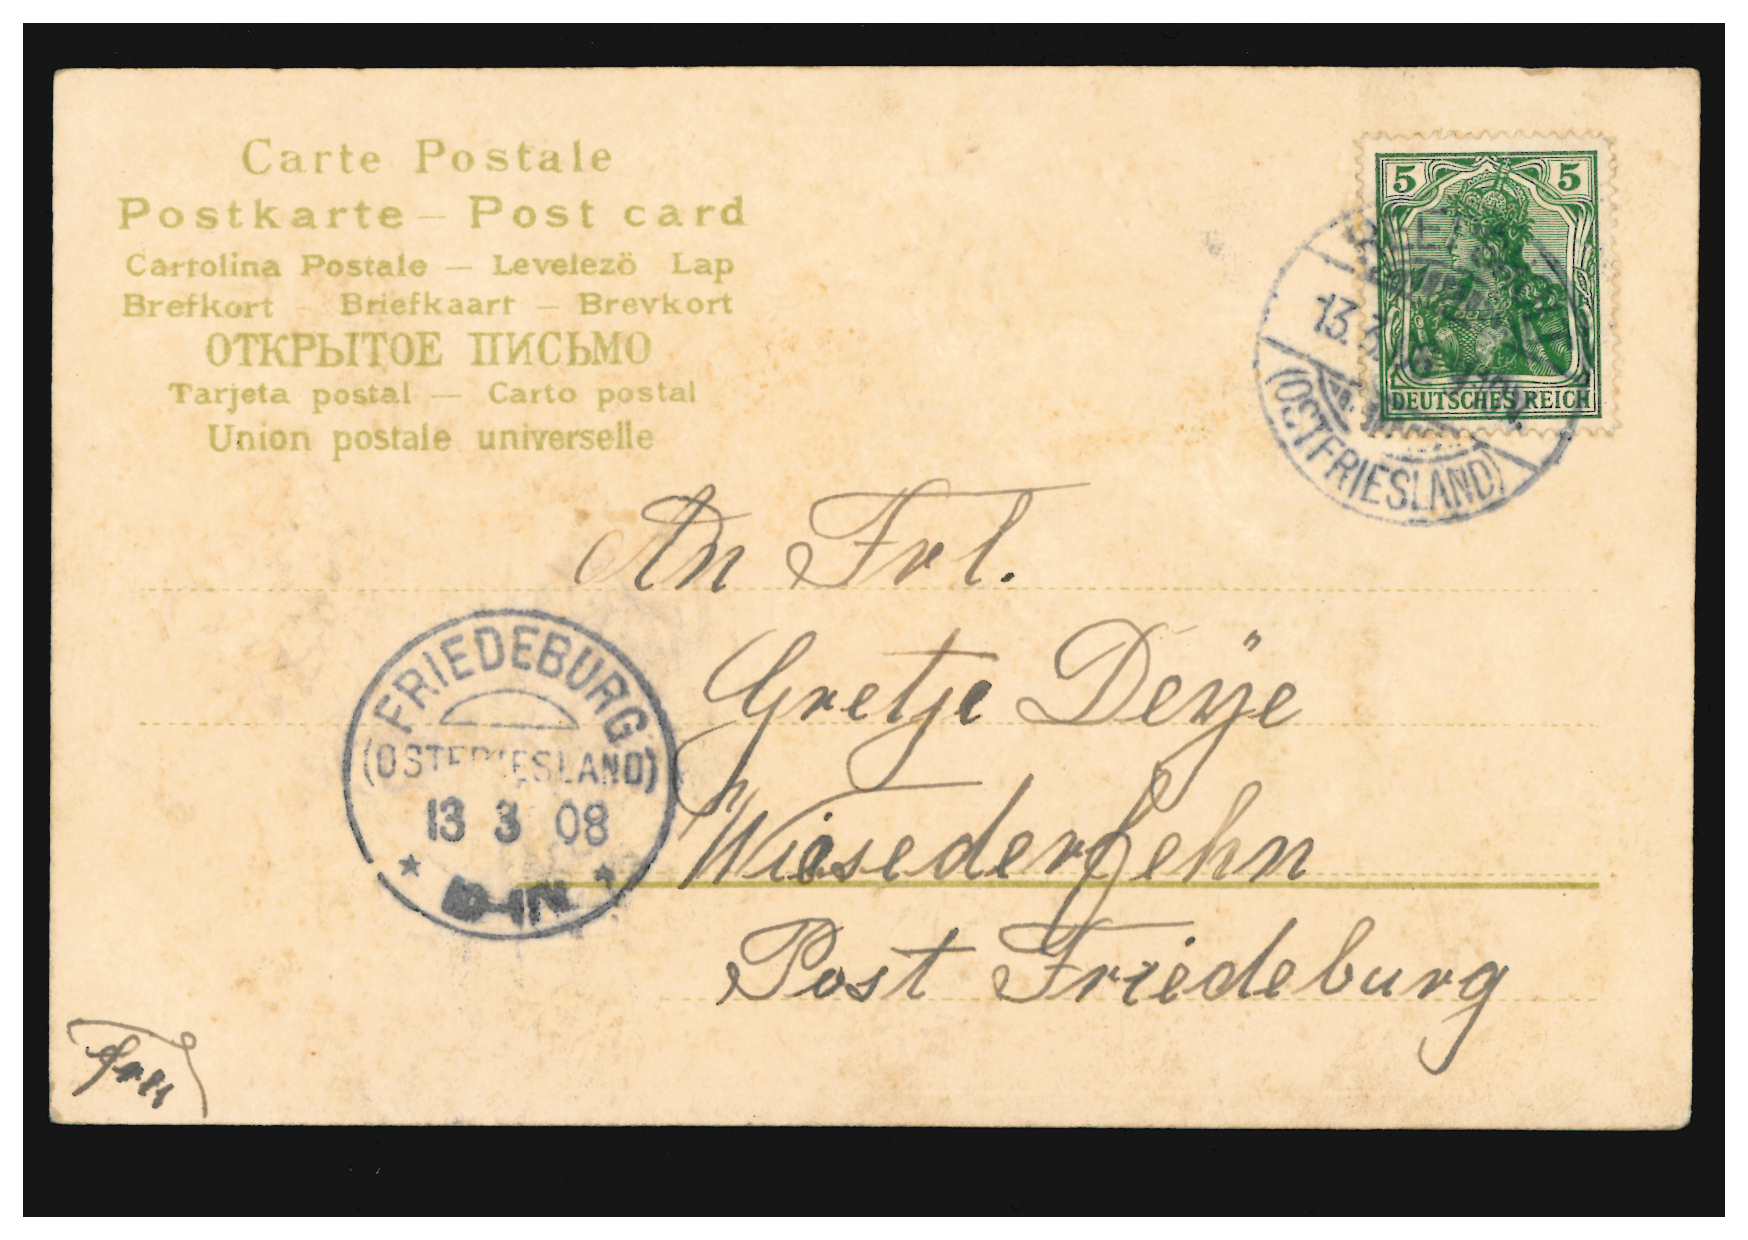 Carte Postale
Postkarte – Post card
Cartolina Postale — Levelezö Lap
Brefkort – Briefkaart – Brevkort
ОТКРЫТОЕ ПИСЬМО
Tarjeta postal — Carto postal
Union postale universelle
5 5
DEUTSCHES REICH
13.3.
(OSTFRIESLAND)
An Frl.
Gretje Deÿe
Wiesederfehn
Post Friedeburg
FRIEDEBURG
(OSTFRIESLAND)
13 3 08